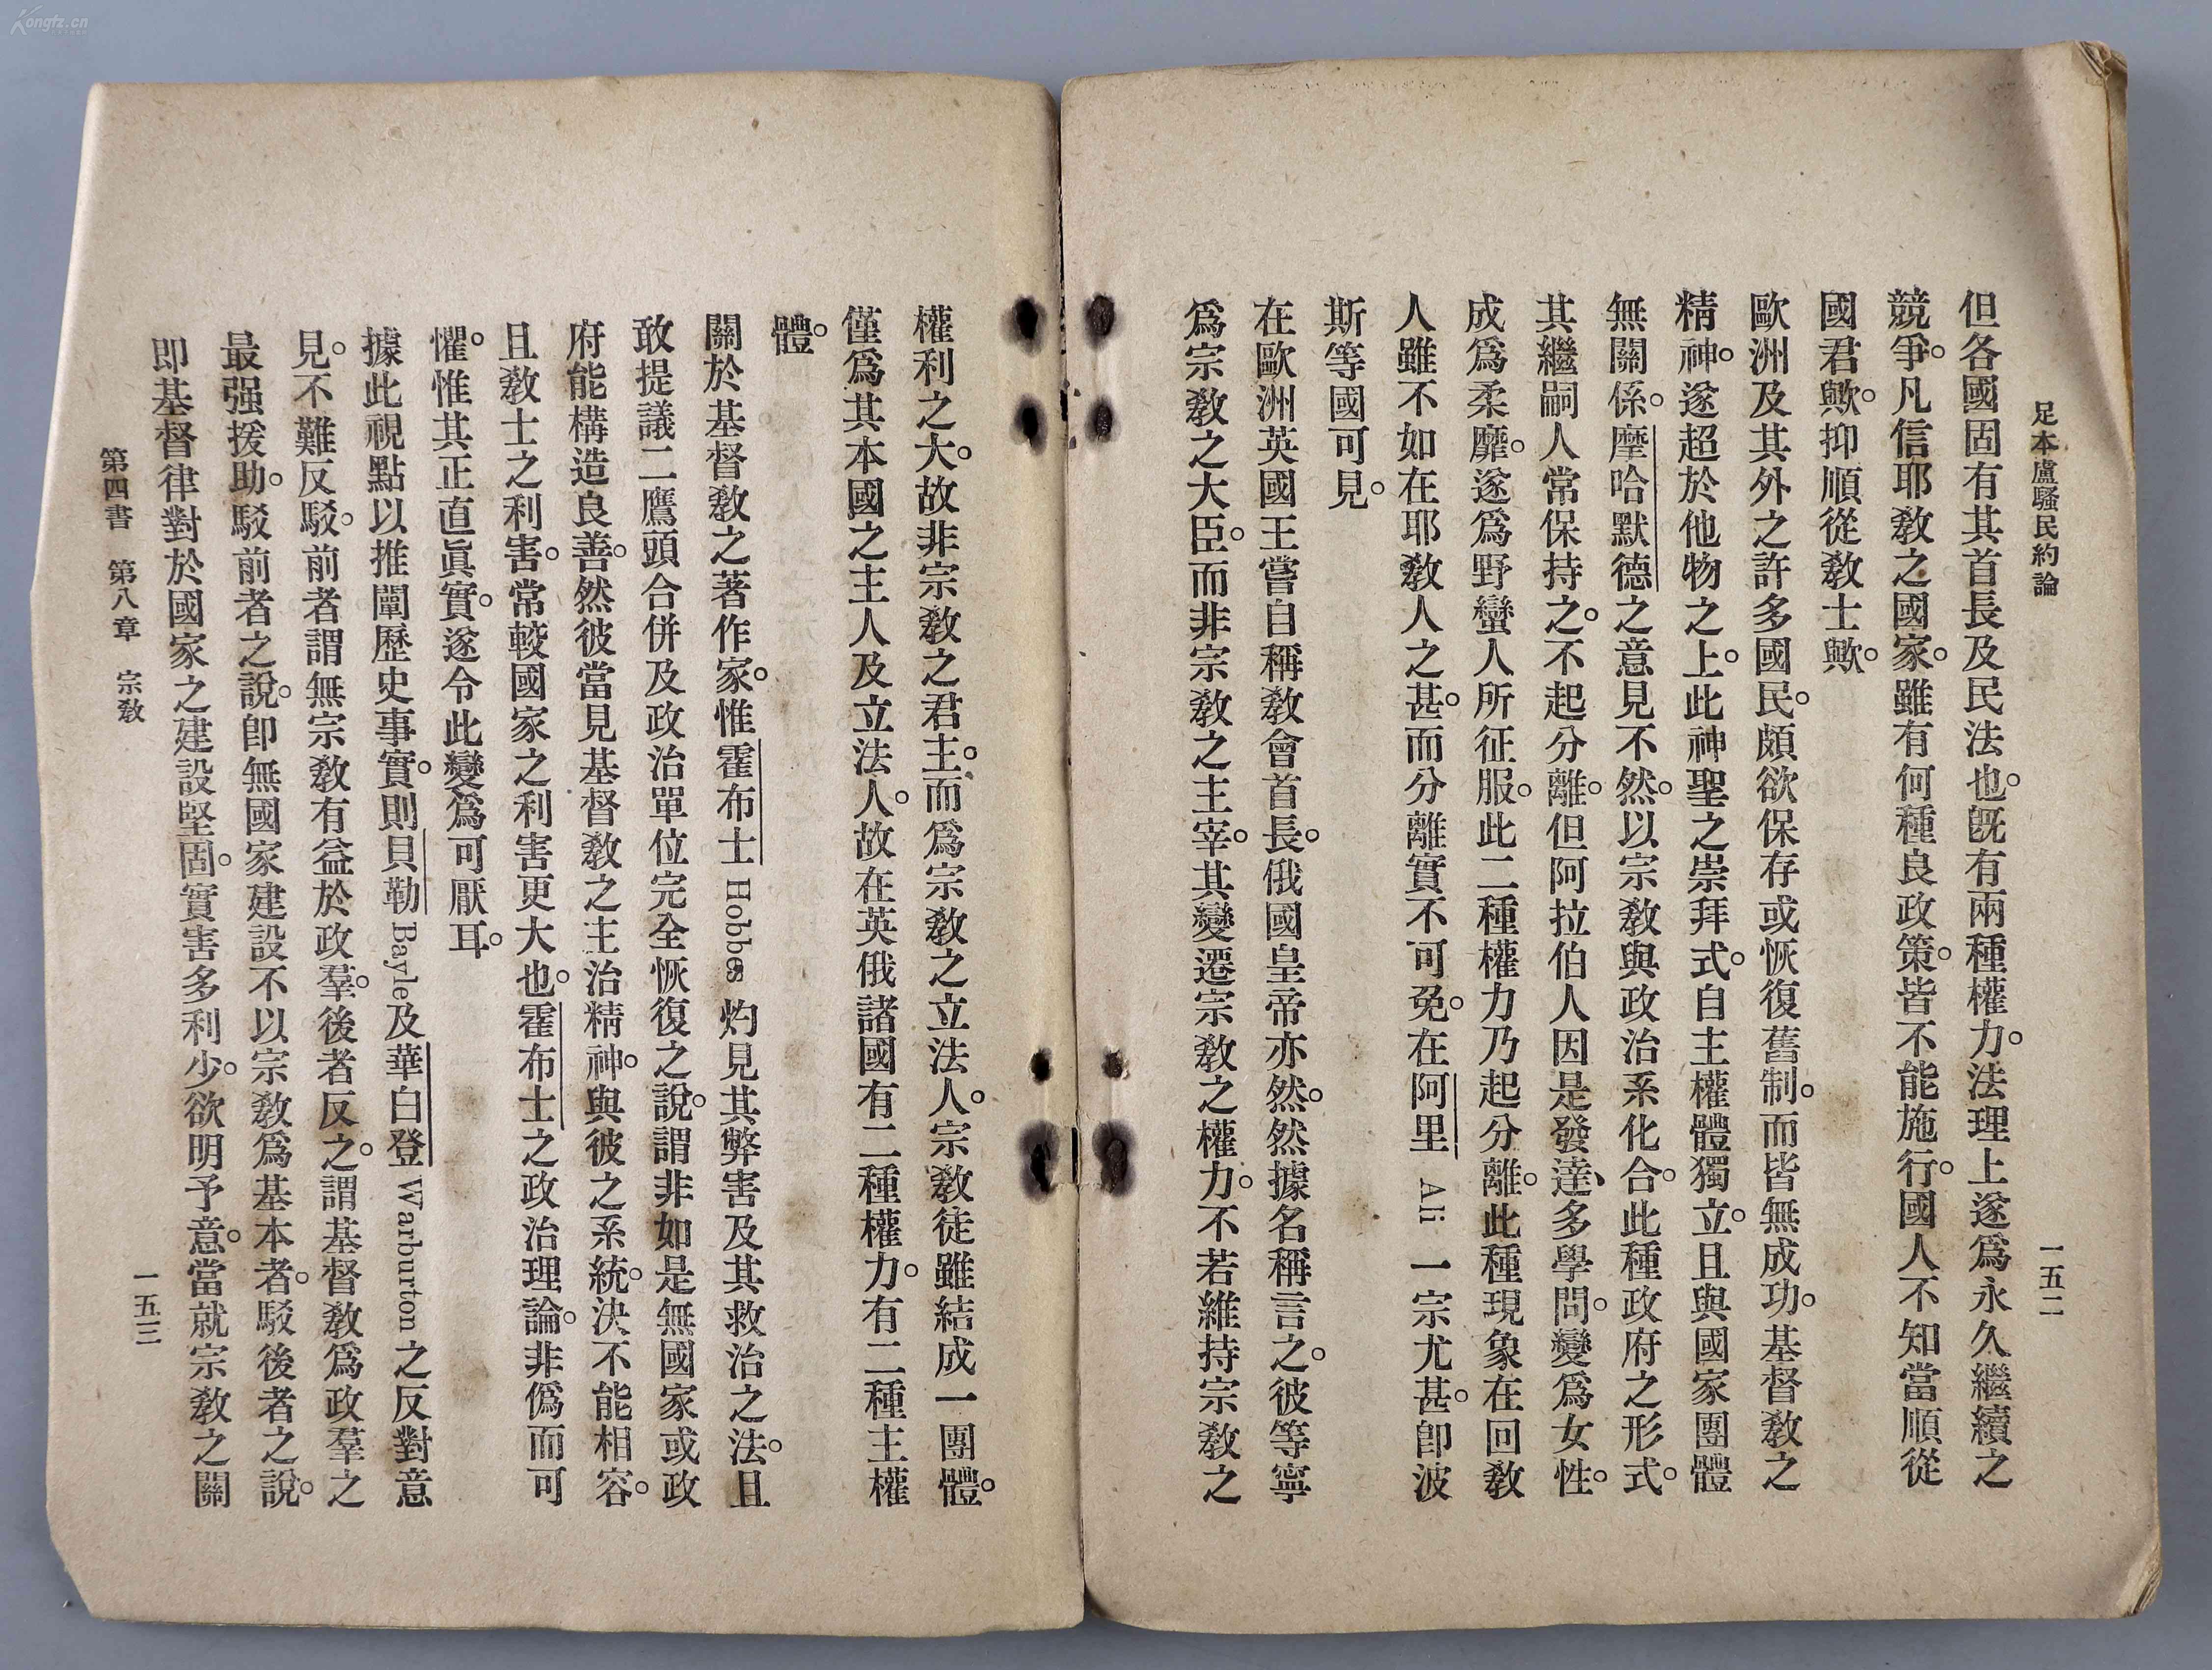 Kongfz.cn
足本盧騷民約論
一五二
但各國固有其首長及民法也。旣有兩種權力。法理上遂爲永久繼續之
競爭。凡信耶敎之國家。雖有何種良政策。皆不能施行。國人不知當順從
國君歟。抑順從敎士歟。
歐洲及其外之許多國民。頗欲保存或恢復舊制。而皆無成功。基督敎之
精神。遂超於他物之上。此神聖之崇拜式。自主權體獨立。且與國家團體
無關係。摩哈默德之意見不然。以宗敎與政治系化合。此種政府之形式。
其繼嗣人常保持之。不起分離。但阿拉伯人因是發達、多學問。變爲女性。
成爲柔靡。遂爲野蠻人所征服。此二種權力乃起分離。此種現象在回敎
人雖不如在耶敎人之甚。而分離實不可免。在阿里 Ali 一宗尤甚。卽波
斯等國可見。
在歐洲英國王嘗自稱敎會首長。俄國皇帝亦然。然據名稱言之。彼等寧
爲宗敎之大臣。而非宗敎之主宰。其變遷宗敎之權力。不若維持宗敎之
權利之大。故非宗敎之君主。而爲宗敎之立法人。宗敎徒雖結成一團體。
僅爲其本國之主人及立法人。故在英俄諸國有二種權力。有二種主權
體。
關於基督敎之著作家。惟霍布士 Hobbes 灼見其弊害及其救治之法。且
敢提議二鷹頭合併及政治單位完全恢復之說。謂非如是無國家或政
府能構造良善。然彼當見基督敎之主治精神。與彼之系統。決不能相容。
且敎士之利害。常較國家之利害更大也。霍布士之政治理論。非僞而可
懼。惟其正直眞實。遂令此變爲可厭耳。
據此視點以推闡歷史事實。則貝勒 Bayle 及華白登 Warburton 之反對意
見。不難反駁。前者謂無宗敎有益於政羣。後者反之。謂基督敎爲政羣之
最强援助。駁前者之說。卽無國家建設不以宗敎爲基本者。駁後者之說。
卽基督律對於國家之建設堅固。實害多利少。欲明予意。當就宗敎之關
第四書 第八章 宗敎
一五三